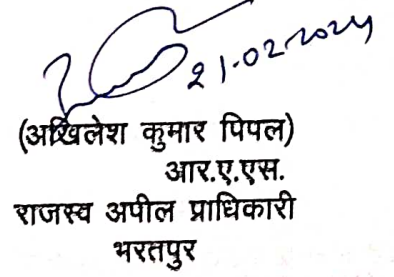 21-02-2024
(अखिलेश कुमार पिपल)
आर.ए.एस.
राजस्व अपील प्राधिकारी
भरतपुर